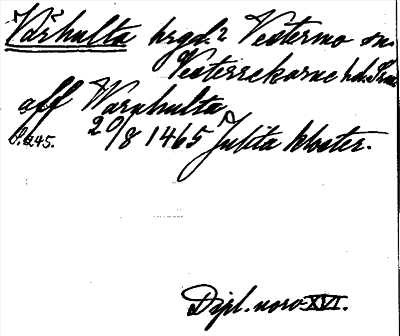 Vårhulta hrgd. 2 Vestermo sn.
Vesterrekarne hd. Srm
aff Warnhulta
S. 245. 20/8 1465 Julita kloster.
Dipl. norv. XVI.